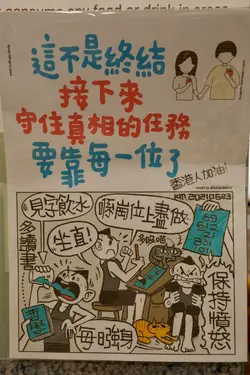 consume any food or drink in areas
這不是終結
接下來
守住真相的任務
要靠每一位了
香港人加油!
KM. 20210623
見字飲水
喺崗位上盡做
坐直!
多讀書
保持憤怒
每日強身
哲學